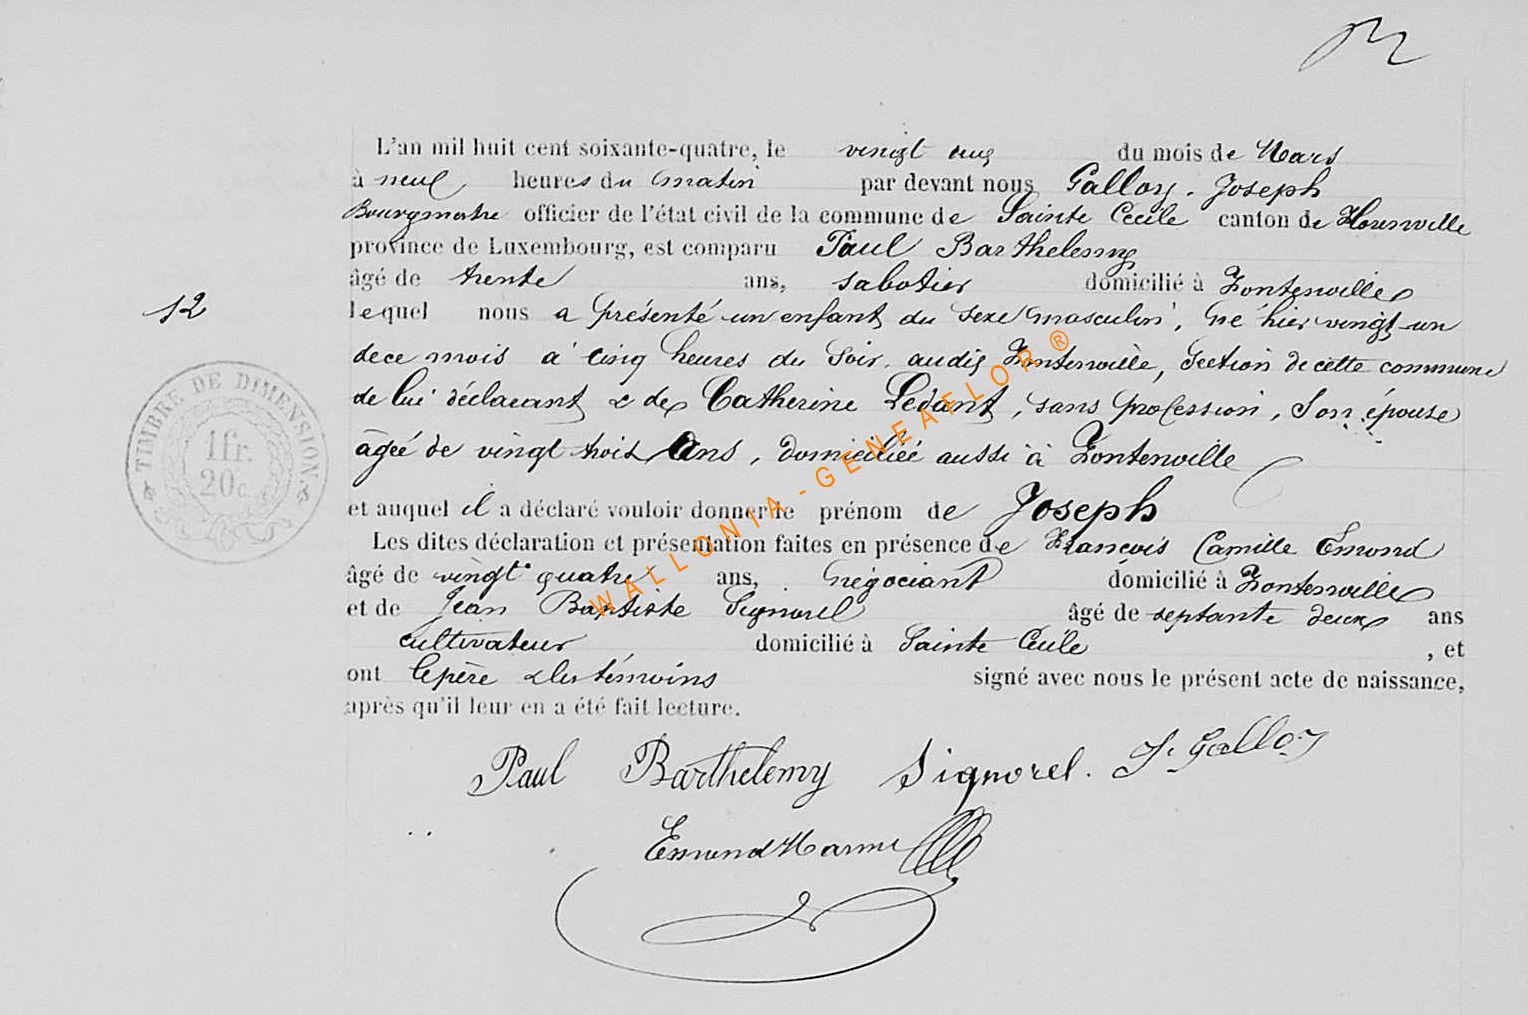 L'an mil huit cent soixante-quatre, le vingt deux du mois de Mars
à neuf heures du matin par devant nous Galloy Joseph
Bourgmestre officier de l'état civil de la commune de Sainte Cecile canton de Florenville
province de Luxembourg, est comparu Paul Barthelemy
âgé de trente ans, sabotier domicilié à Fontenoille
12
lequel nous a présenté un enfant du sexe masculin, né hier vingt un
de ce mois à cinq heures du soir audit Fontenoille, section de cette commune
de lui déclarant & de Catherine Ledant, sans profession, son épouse
âgée de vingt trois ans, domiciliée aussi à Fontenoille
TIMBRE DE DIMENSION.
1 fr.
20 c.
et auquel il a déclaré vouloir donner le prénom de Joseph
Les dites déclaration et présentation faites en présence de François Camille Emond
âgé de vingt quatre ans, négociant domicilié à Fontenoille
et de Jean Baptiste Signorel âgé de septante deux ans
cultivateur domicilié à Sainte Cecile , et
ont le père & les témoins signé avec nous le présent acte de naissance,
après qu'il leur en a été fait lecture.
Paul Barthelemy Signorel. J. Galloy
Emond
WALLONIA-GENEAELOR®